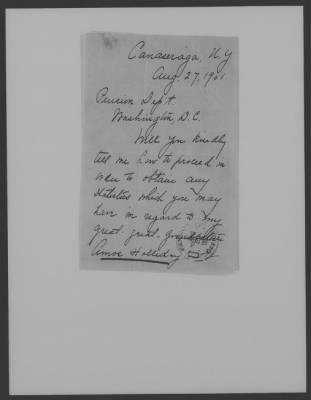 Canaseraga, N.Y
Aug. 27, 1901
Pension Dep't.
Washington, D.C.
Will you kindly
tell me how to proceed in
order to obtain any
statistics which you may
have in regard to my
great-great-grandfather
Amos Holliday